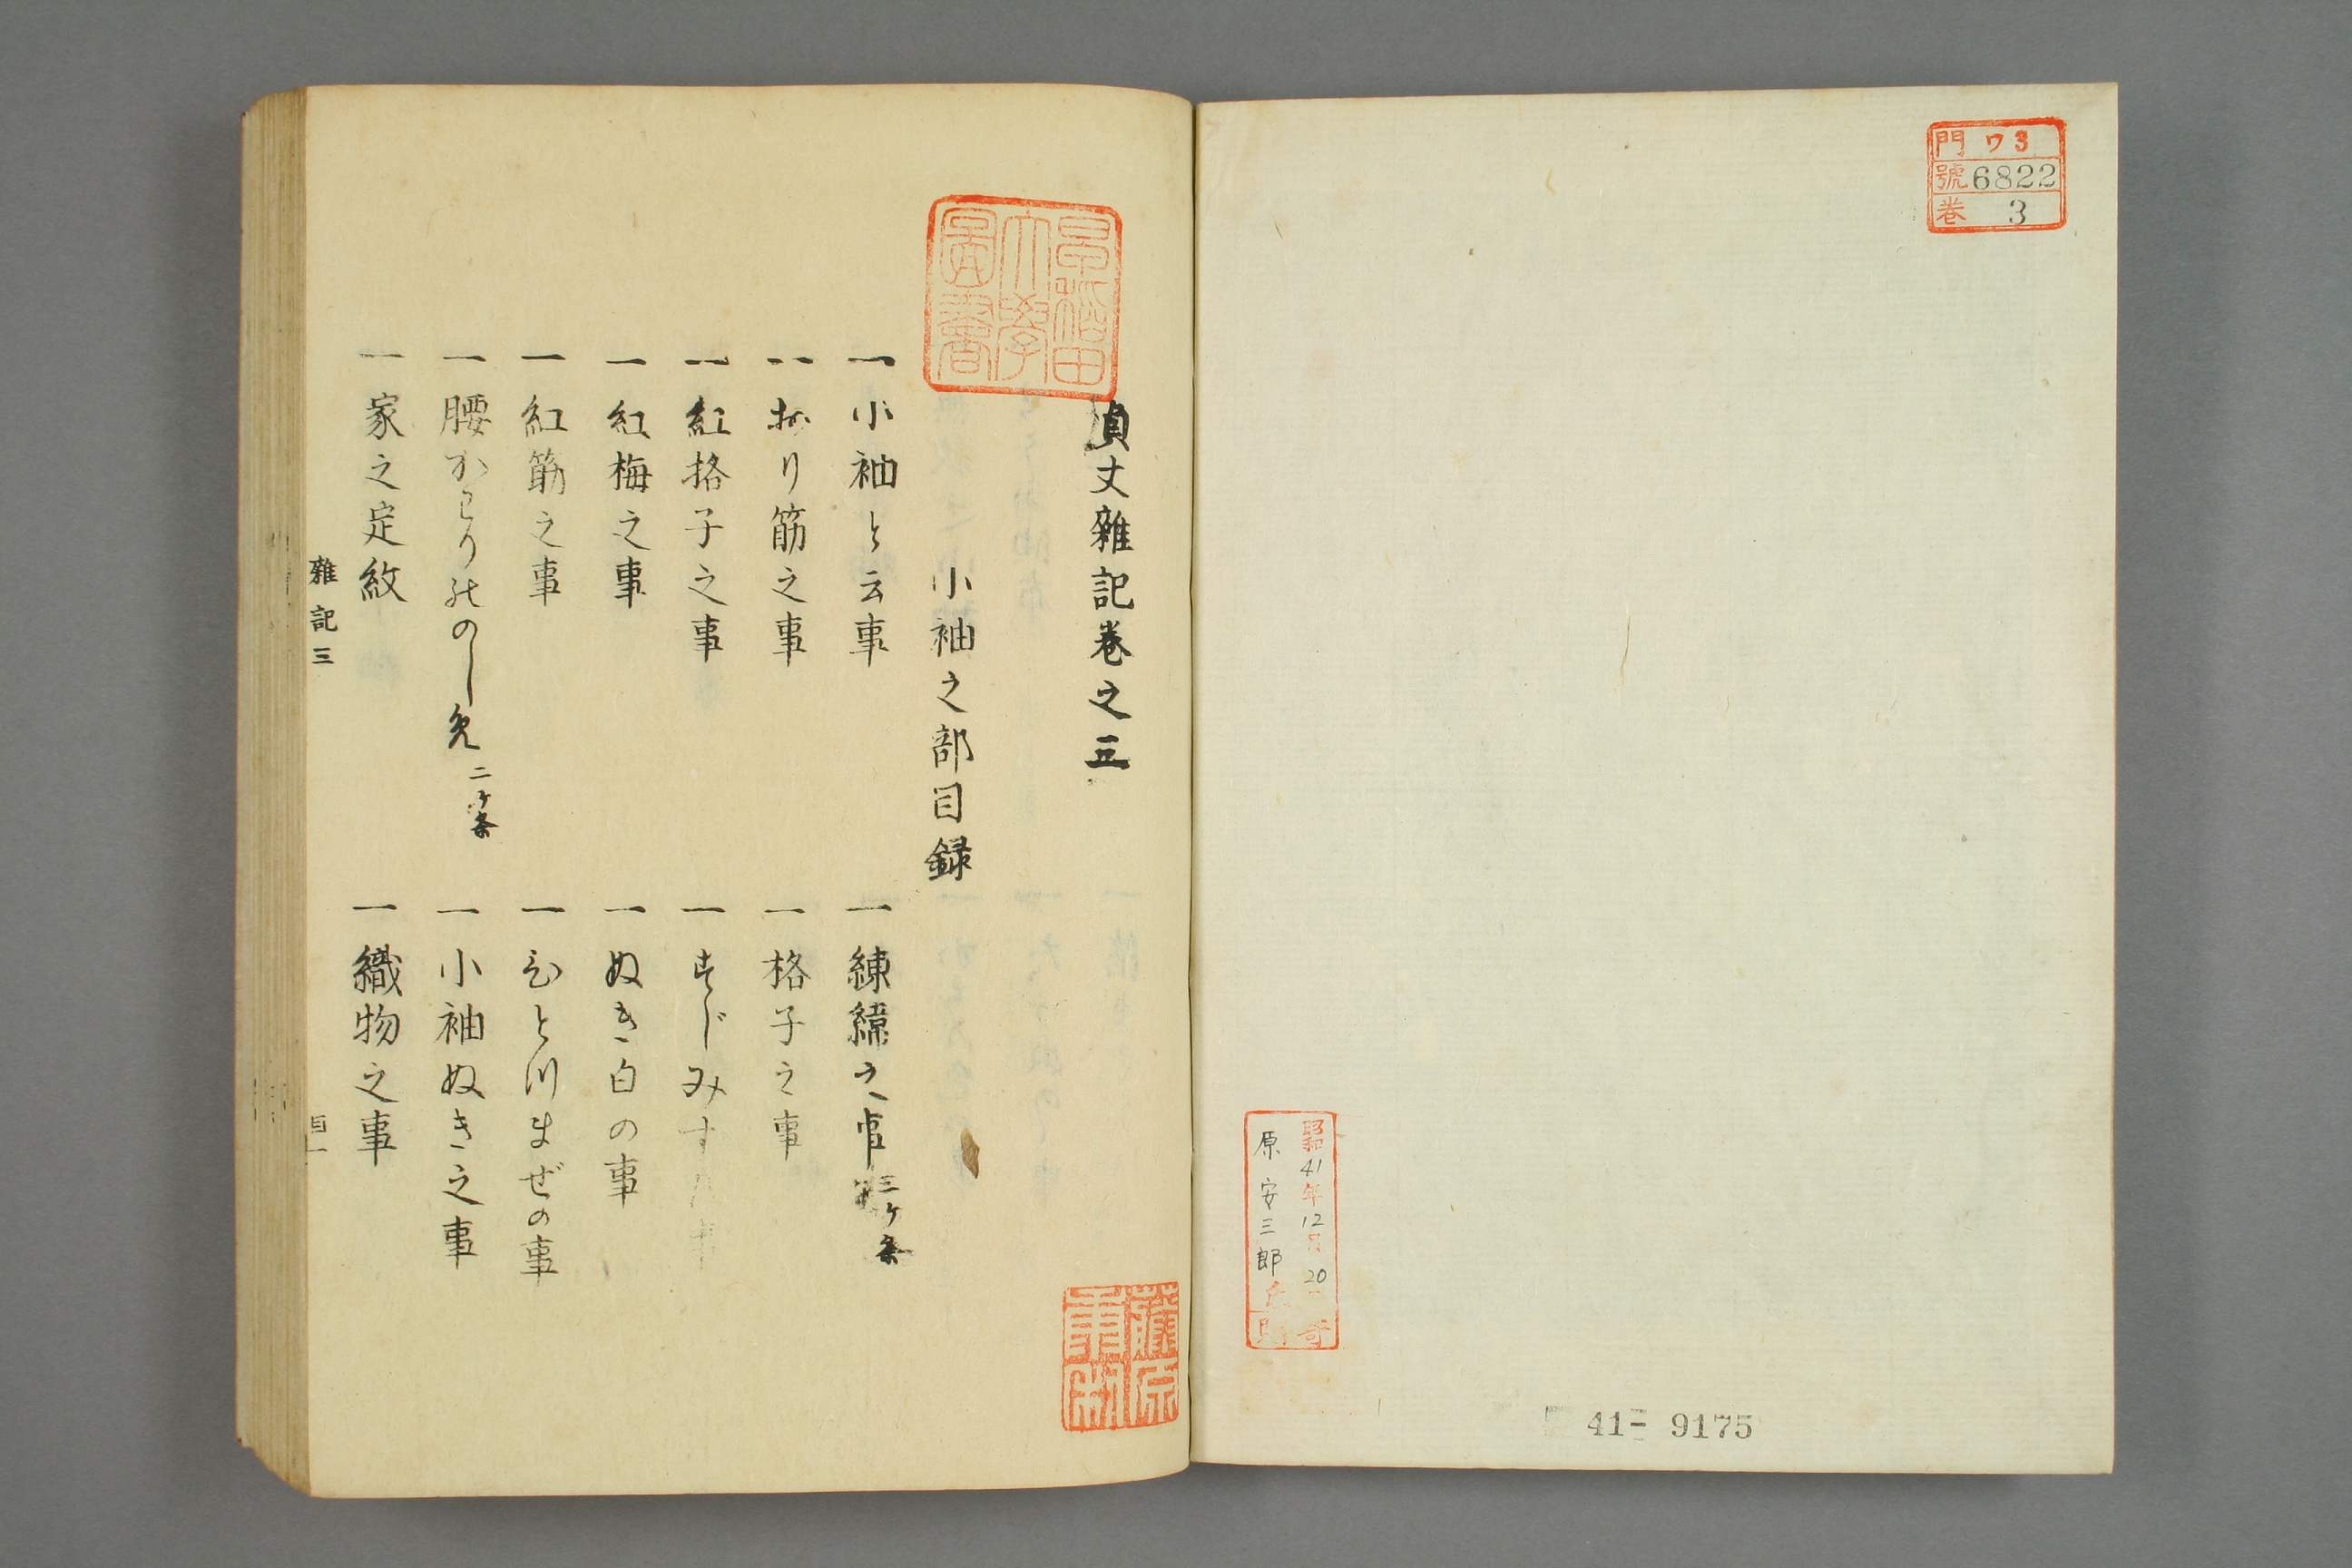 門 ワ3
號 6822
巻 3
昭和41年12月20
原安三郎
41-9175
早稲田
大學
圖書
貞丈雜記巻之三
小袖之部目録
一 小袖と云事
一 練緯之事 三ケ条
一 おり筋之事
一 格子之事
一 紅格子之事
一 すじみす
一 紅梅之事
一 ぬき白の事
一 紅筋之事
一 ひとつまぜの事
一 腰かわりのしめ 二ケ条
一 小袖ぬき之事
一 家之定紋
一 織物之事
雜記三
目一
藤原